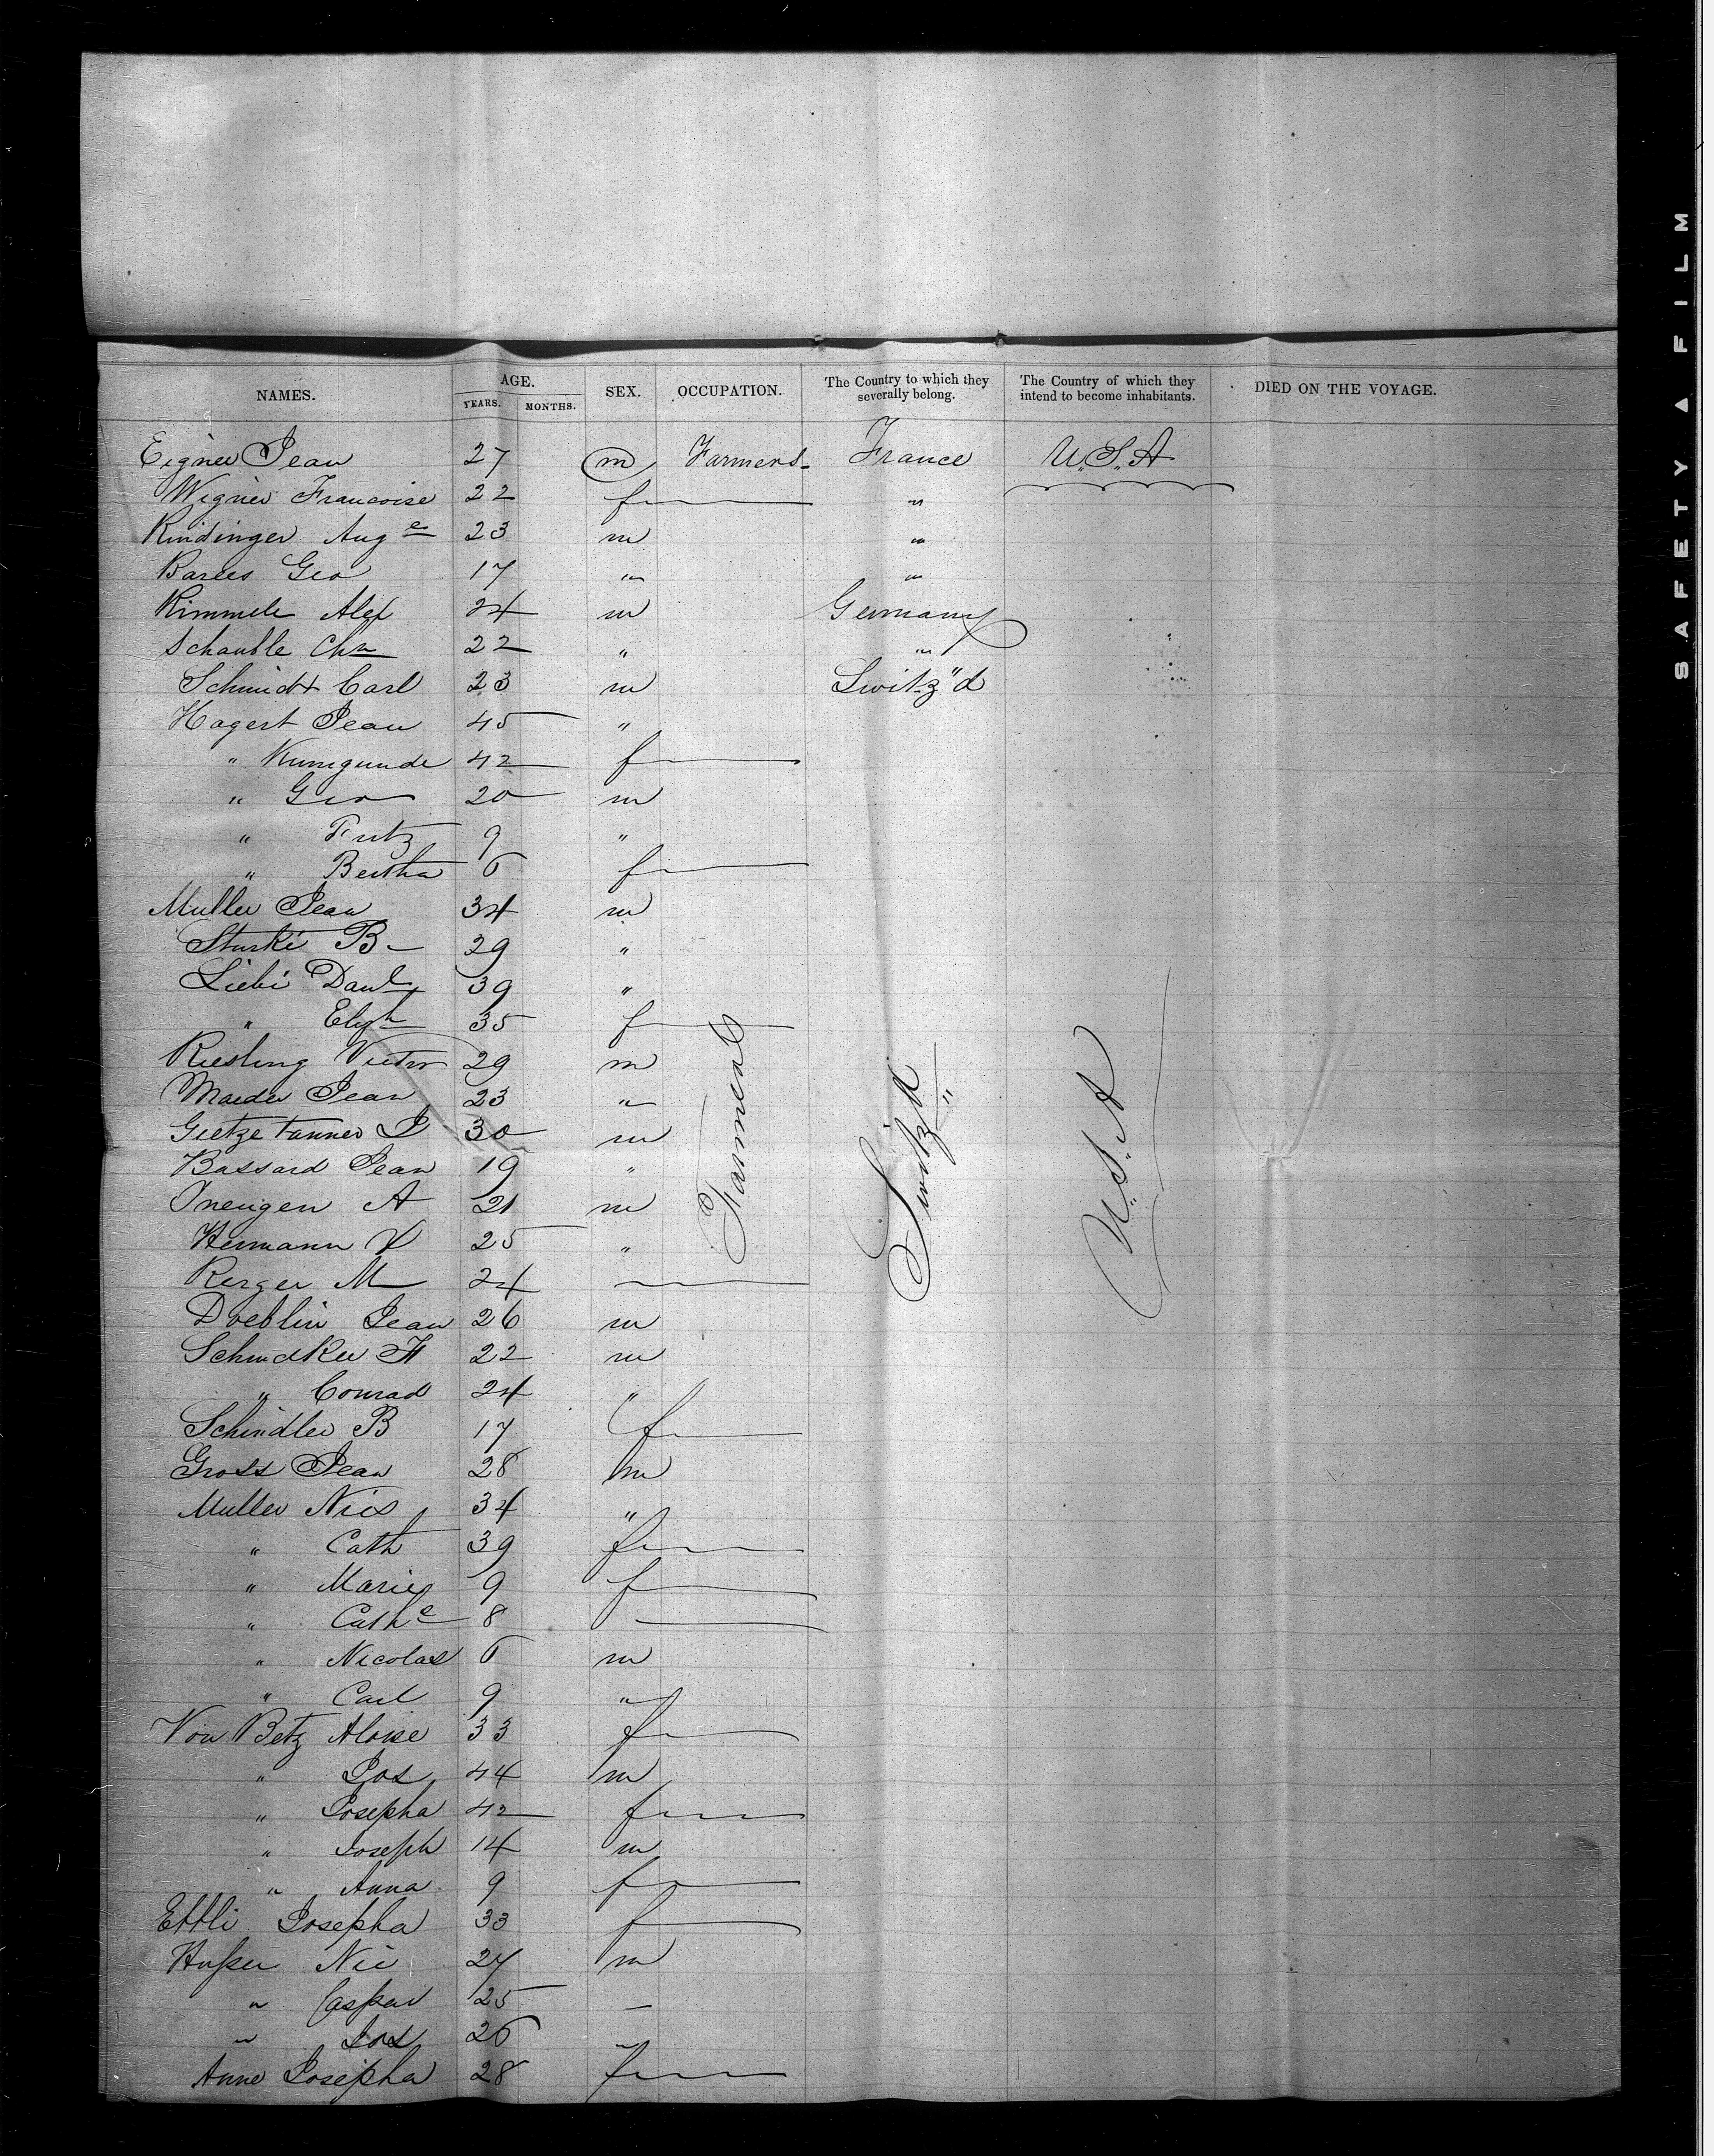 NAMES. AGE. SEX. OCCUPATION. The Country to which they severally belong. The Country of which they intend to become inhabitants. DIED ON THE VOYAGE.
YEARS. MONTHS.
Jean 27 m Farmers France U.S.A
Francoise 22 f "
Rindinger Aug e 23 m "
Geo 17 " "
Kimmele Alex 24 m Germany
Schauble Chn 22 " "
Schmidt Carl 23 m Switz"d
Hagert Jean 45 "
" Kunigunde 42 f
" Geo 20 m
" Fritz 9 "
" Bertha 6 f
Muller Jean 34 m
Sturki B 29 "
Liebi Danl 39 "
" Elizh 35 f
Riesling Victor 29 m
Maeder Jean 23 "
30 m
Bassard Jean 19 "
A 21 m
Hermann 25 "
M 24
Doeblin Jean 26 m
22 m
" Conrad 24 "
Schindler B 17 f
Gross Jean 28 m
Muller Nics 34 "
" Cath 39 f
" Marie 9 f
" Cathe 8
" Nicolas 6 m
" Carl 9 "
Von Betz Aloise 33 f
" Jos 44 m
" Josepha 42 f
" Joseph 14 m
" Anna 9 f
Ettli Josepha 33 f
Nic 27 m
" Caspar 25
" Jos 26 "
Anne Josepha 28 f
Farmers
Switz"d
U.S.A
SAFETY FILM